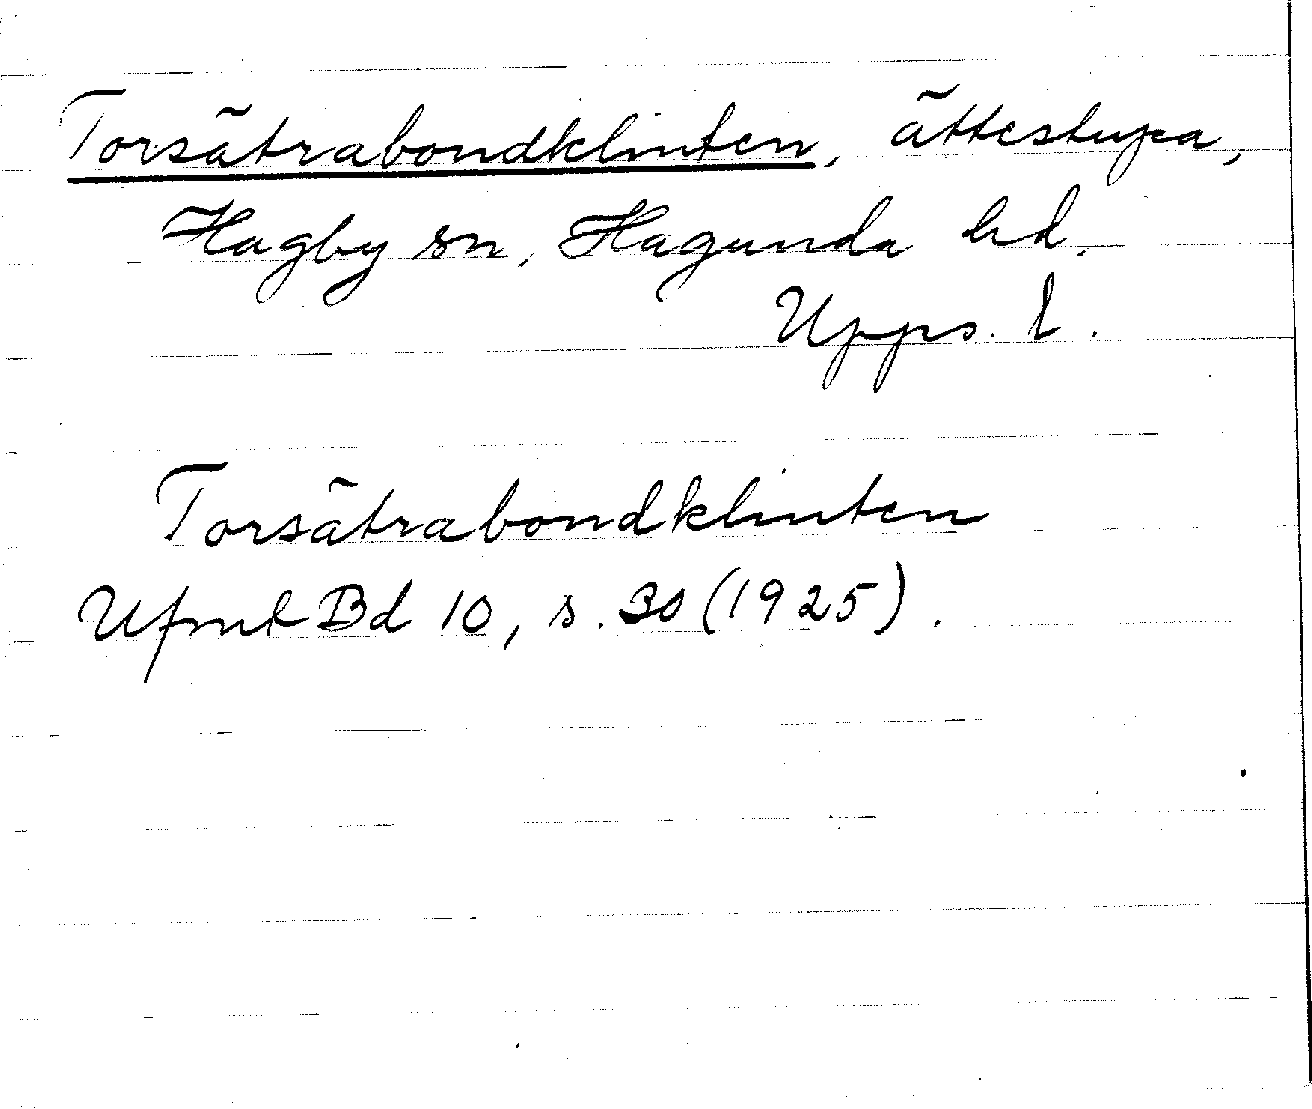 Torsätrabondklinten, ättestupa,
Hagby sn, Hagunda hd.
Upps. l.
Torsätrabondklinten
Ufmt Bd 10, s. 30 (1925).